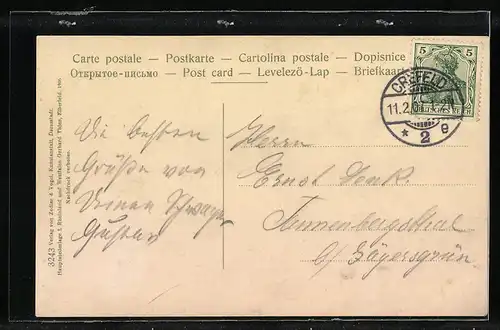 Carte postale — Postkarte — Cartolina postale — Dopisnice
Открытое-письмо — Post card — Levelező-Lap — Briefkaart
5 5
CREFELD
11.2.
* 2 e
Die besten
Grüße von
Deinem Schwager
Gustav
Herrn
Ernst Denk.
Tannenbergsthal
b/ Jägersgrün
3243 Verlag von Zedler & Vogel, Kunstanstalt, Darmstadt.
Nachdruck verboten.